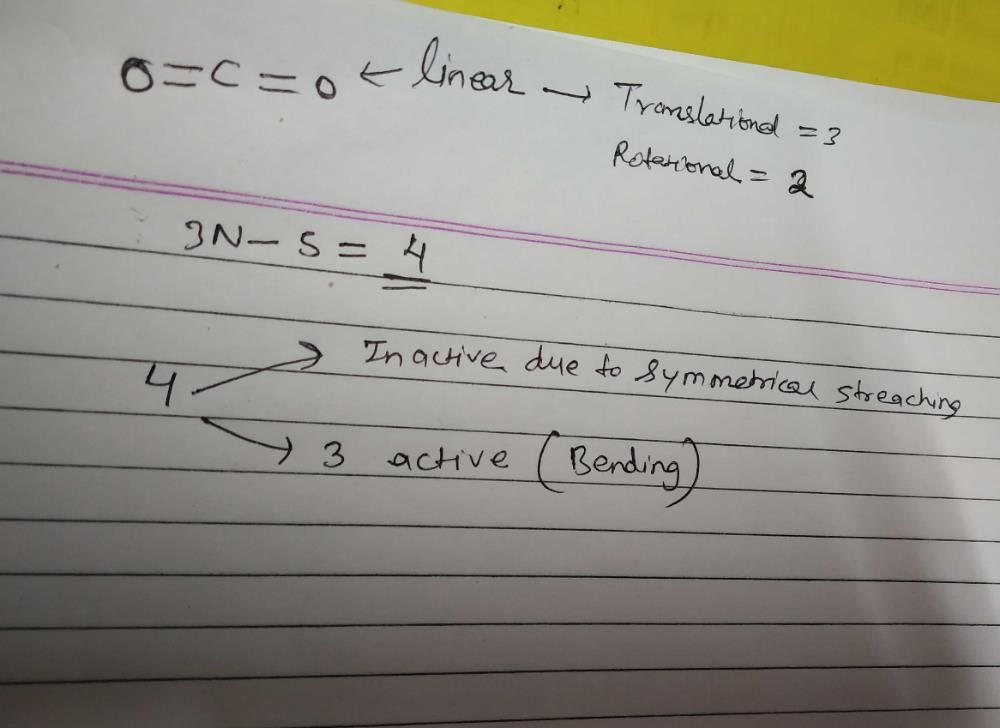 O=C=O ← linear → Translational = 3
Rotational = 2
3N - 5 = 4
Inactive due to Symmetrical streaching
4
3 active (Bending)